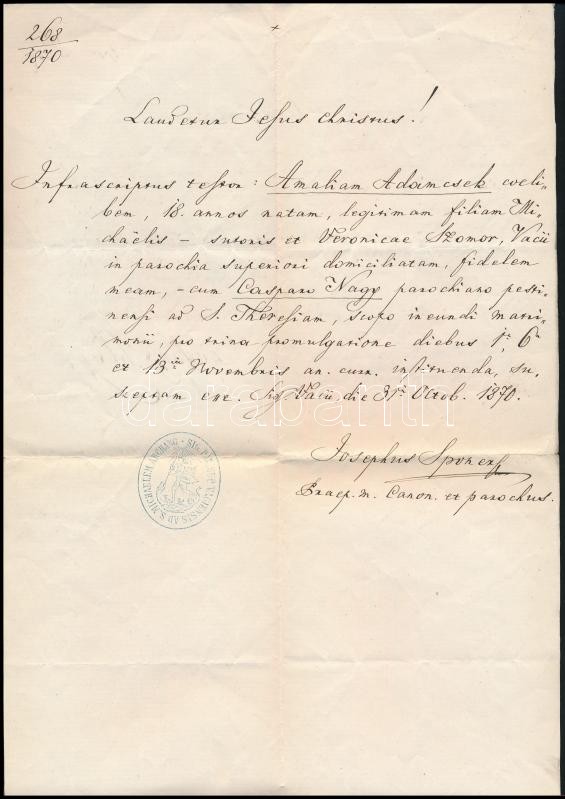 268
1870
Laudetur Jesus Christus!
Infrascriptus testor: Amaliam Adamcsek coeli-
bem, 18. annos natam, legitimam filiam Mi-
chaëlis – sutoris et Veronicae Szomor, Vacii
in parochia superiori domiciliatam, fidelem
meam, – cum Casparo Nagy parochiano pesti-
nensi ad S. Theresiam, scopo ineundi matri-
monii, pro trina promulgatione diebus 1a, 6a
et 13a Novembris an. curr. instituenda, su-
sceptam esse. Sig. Vacii, die 31a Octob. 1870.
Josephus
Praep. m. Canon. et parochus.
AD S. MICHAELEM ARCHANG. SIG.
darabanth